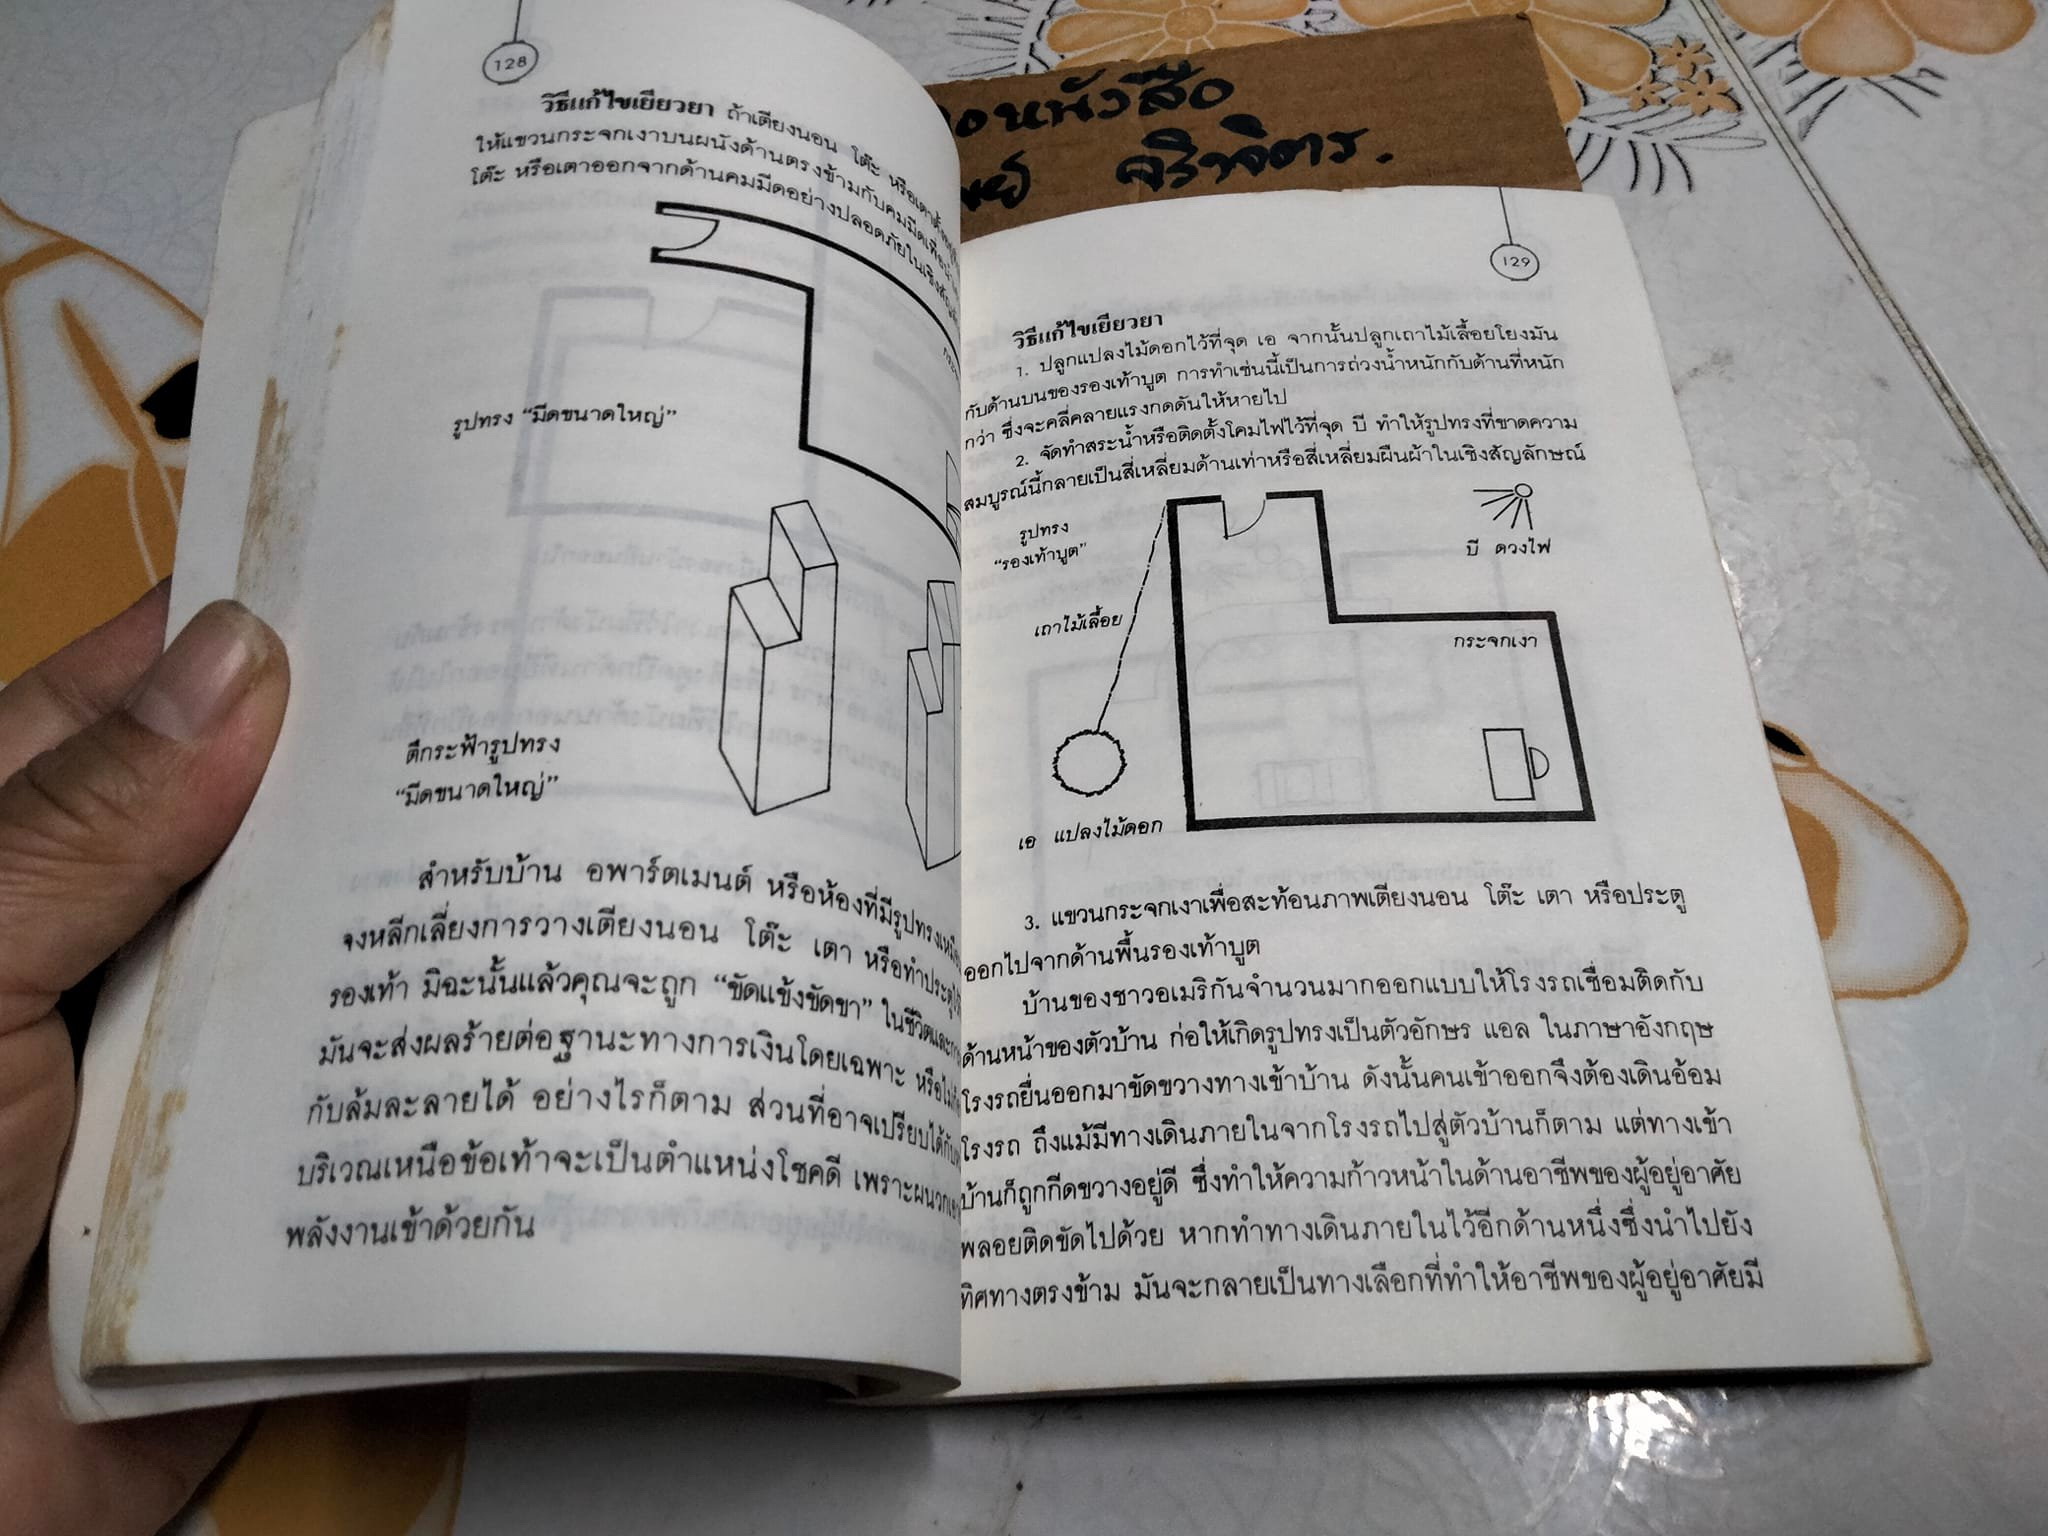 128
วิธีแก้ไขเยียวยา ถ้าเตียงนอน โต๊ะ หรือเตา
ให้แขวนกระจกเงาบนผนังด้านตรงข้ามกับคมมีดเพื่อ
โต๊ะ หรือเตาออกจากด้านคมมีดอย่างปลอดภัยในเชิง
รูปทรง “มีดขนาดใหญ่”
ตึกระฟ้ารูปทรง
“มีดขนาดใหญ่”
สำหรับบ้าน อพาร์ตเมนต์ หรือห้องที่มีรูปทรง
จงหลีกเลี่ยงการวางเตียงนอน โต๊ะ เตา หรือทำประตู
รองเท้า มิฉะนั้นแล้วคุณจะถูก “ขัดแข้งขัดขา” ในชีวิต
มันจะส่งผลร้ายต่อฐานะทางการเงินโดยเฉพาะ
กับล้มละลายได้ อย่างไรก็ตาม ส่วนที่อาจเปรียบได้กับ
บริเวณเหนือข้อเท้าจะเป็นตำแหน่งโชคดี เพราะ
พลังงานเข้าด้วยกัน
หนังสือ
จริงจิตร.
129
วิธีแก้ไขเยียวยา
1. ปลูกแปลงไม้ดอกไว้ที่จุด เอ จากนั้นปลูกเถาไม้เลื้อยโยงมัน
กับด้านบนของรองเท้าบูต การทำเช่นนี้เป็นการถ่วงน้ำหนักกับด้านที่หนัก
กว่า ซึ่งจะคลี่คลายแรงกดดันให้หายไป
2. จัดทำสระน้ำหรือติดตั้งโคมไฟไว้ที่จุด บี ทำให้รูปทรงที่ขาดความ
สมบูรณ์นี้กลายเป็นสี่เหลี่ยมด้านเท่าหรือสี่เหลี่ยมผืนผ้าในเชิงสัญลักษณ์
รูปทรง
“รองเท้าบูต”
บี ดวงไฟ
เถาไม้เลื้อย
กระจกเงา
เอ แปลงไม้ดอก
3. แขวนกระจกเงาเพื่อสะท้อนภาพเตียงนอน โต๊ะ เตา หรือประตู
ออกไปจากด้านพื้นรองเท้าบูต
บ้านของชาวอเมริกันจำนวนมากออกแบบให้โรงรถเชื่อมติดกับ
ด้านหน้าของตัวบ้าน ก่อให้เกิดรูปทรงเป็นตัวอักษร แอล ในภาษาอังกฤษ
โรงรถยื่นออกมาขัดขวางทางเข้าบ้าน ดังนั้นคนเข้าออกจึงต้องเดินอ้อม
โรงรถ ถึงแม้มีทางเดินภายในจากโรงรถไปสู่ตัวบ้านก็ตาม แต่ทางเข้า
บ้านก็ถูกกีดขวางอยู่ดี ซึ่งทำให้ความก้าวหน้าในด้านอาชีพของผู้อยู่อาศัย
พลอยติดขัดไปด้วย หากทำทางเดินภายในไว้อีกด้านหนึ่งซึ่งนำไปยัง
ทิศทางตรงข้าม มันจะกลายเป็นทางเลือกที่ทำให้อาชีพของผู้อยู่อาศัยมี